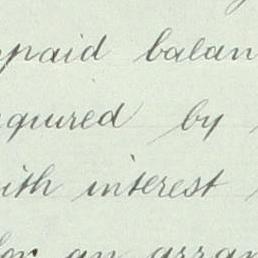 npaid balan
quired by
ith interest
for an arran